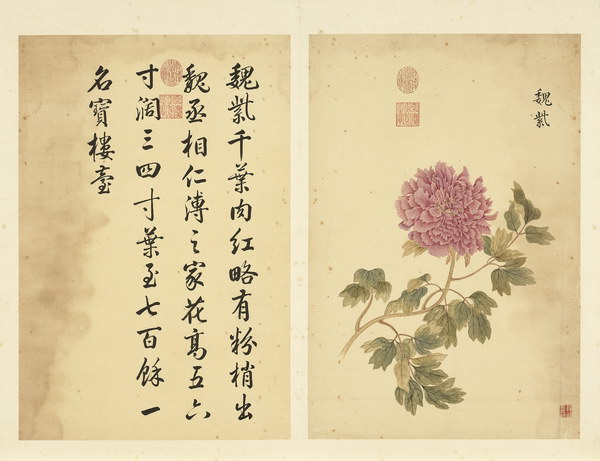 魏紫
魏紫千葉肉紅略有粉梢出
魏丞相仁溥之家花高五六
寸闊三四寸葉至七百餘一
名寶樓臺